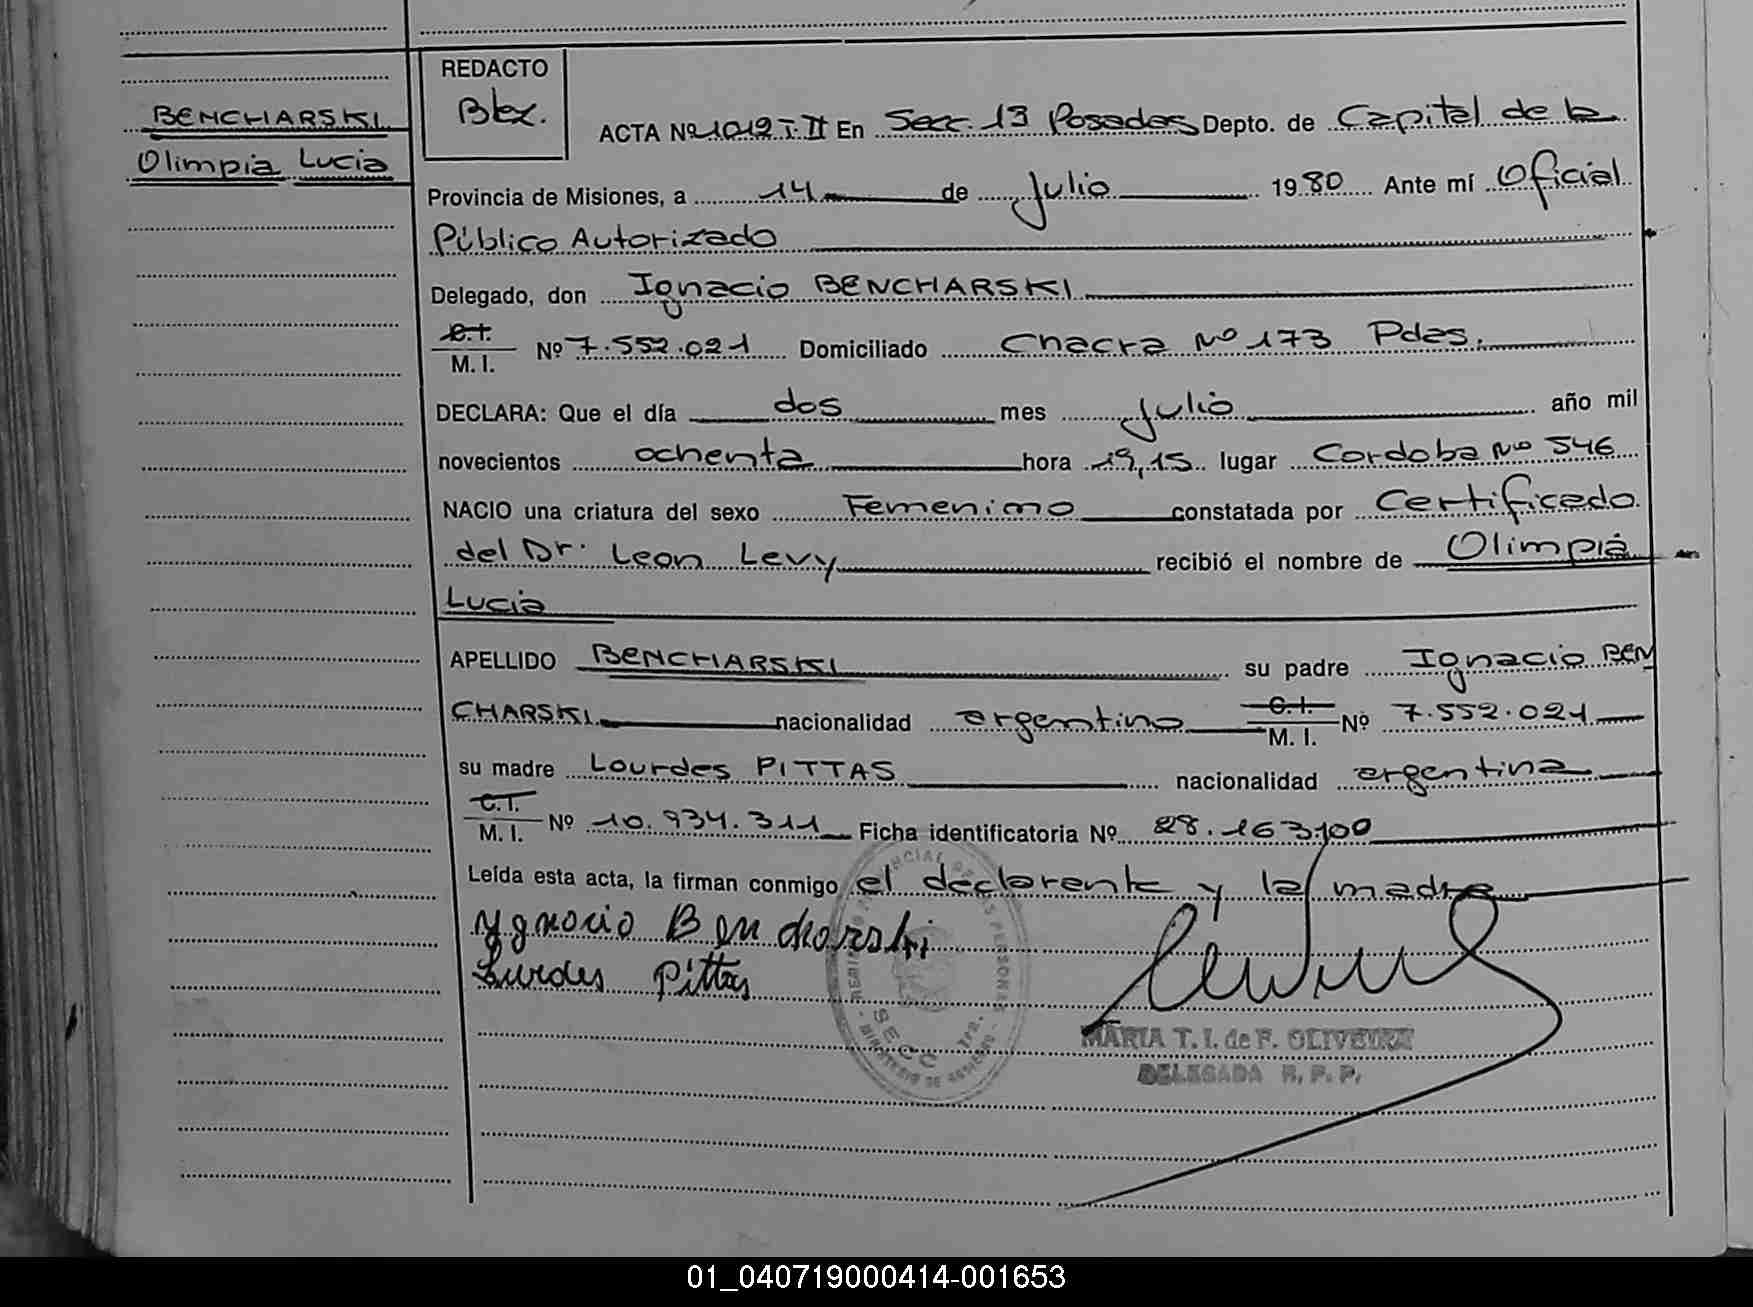 REDACTO
BENCHARSKI
Olimpia Lucia
ACTA Nº 1012 T. II En Secc. 13 Posadas Depto. de Capital de la
Provincia de Misiones, a 14 de Julio 1980 Ante mí Oficial
Público Autorizado
Delegado, don Ignacio BENCHARSKI
C.I.
M. I. Nº 7.552.021 Domiciliado Chacra Nº 173 Pdas.
DECLARA: Que el día dos mes Julio año mil
novecientos ochenta hora 19,15 lugar Cordoba Nº 546
NACIO una criatura del sexo Femenino constatada por Certificado
del Dr. Leon Levy recibió el nombre de Olimpia
Lucia
APELLIDO BENCHARSKI su padre Ignacio BEN
CHARSKI nacionalidad argentino C.I. M. I. Nº 7.552.021
su madre Lourdes PITTAS nacionalidad argentina
C.I.
M. I. Nº 10.934.311 Ficha identificatoria Nº 28.163100
Leída esta acta, la firman conmigo el declarante y la madre
Ygnacio Bencharski
Lurdes Pittas
SECC
MARIA T. I. de F. OLIVEIRA
DELEGADA R. P. P.
01_040719000414-001653